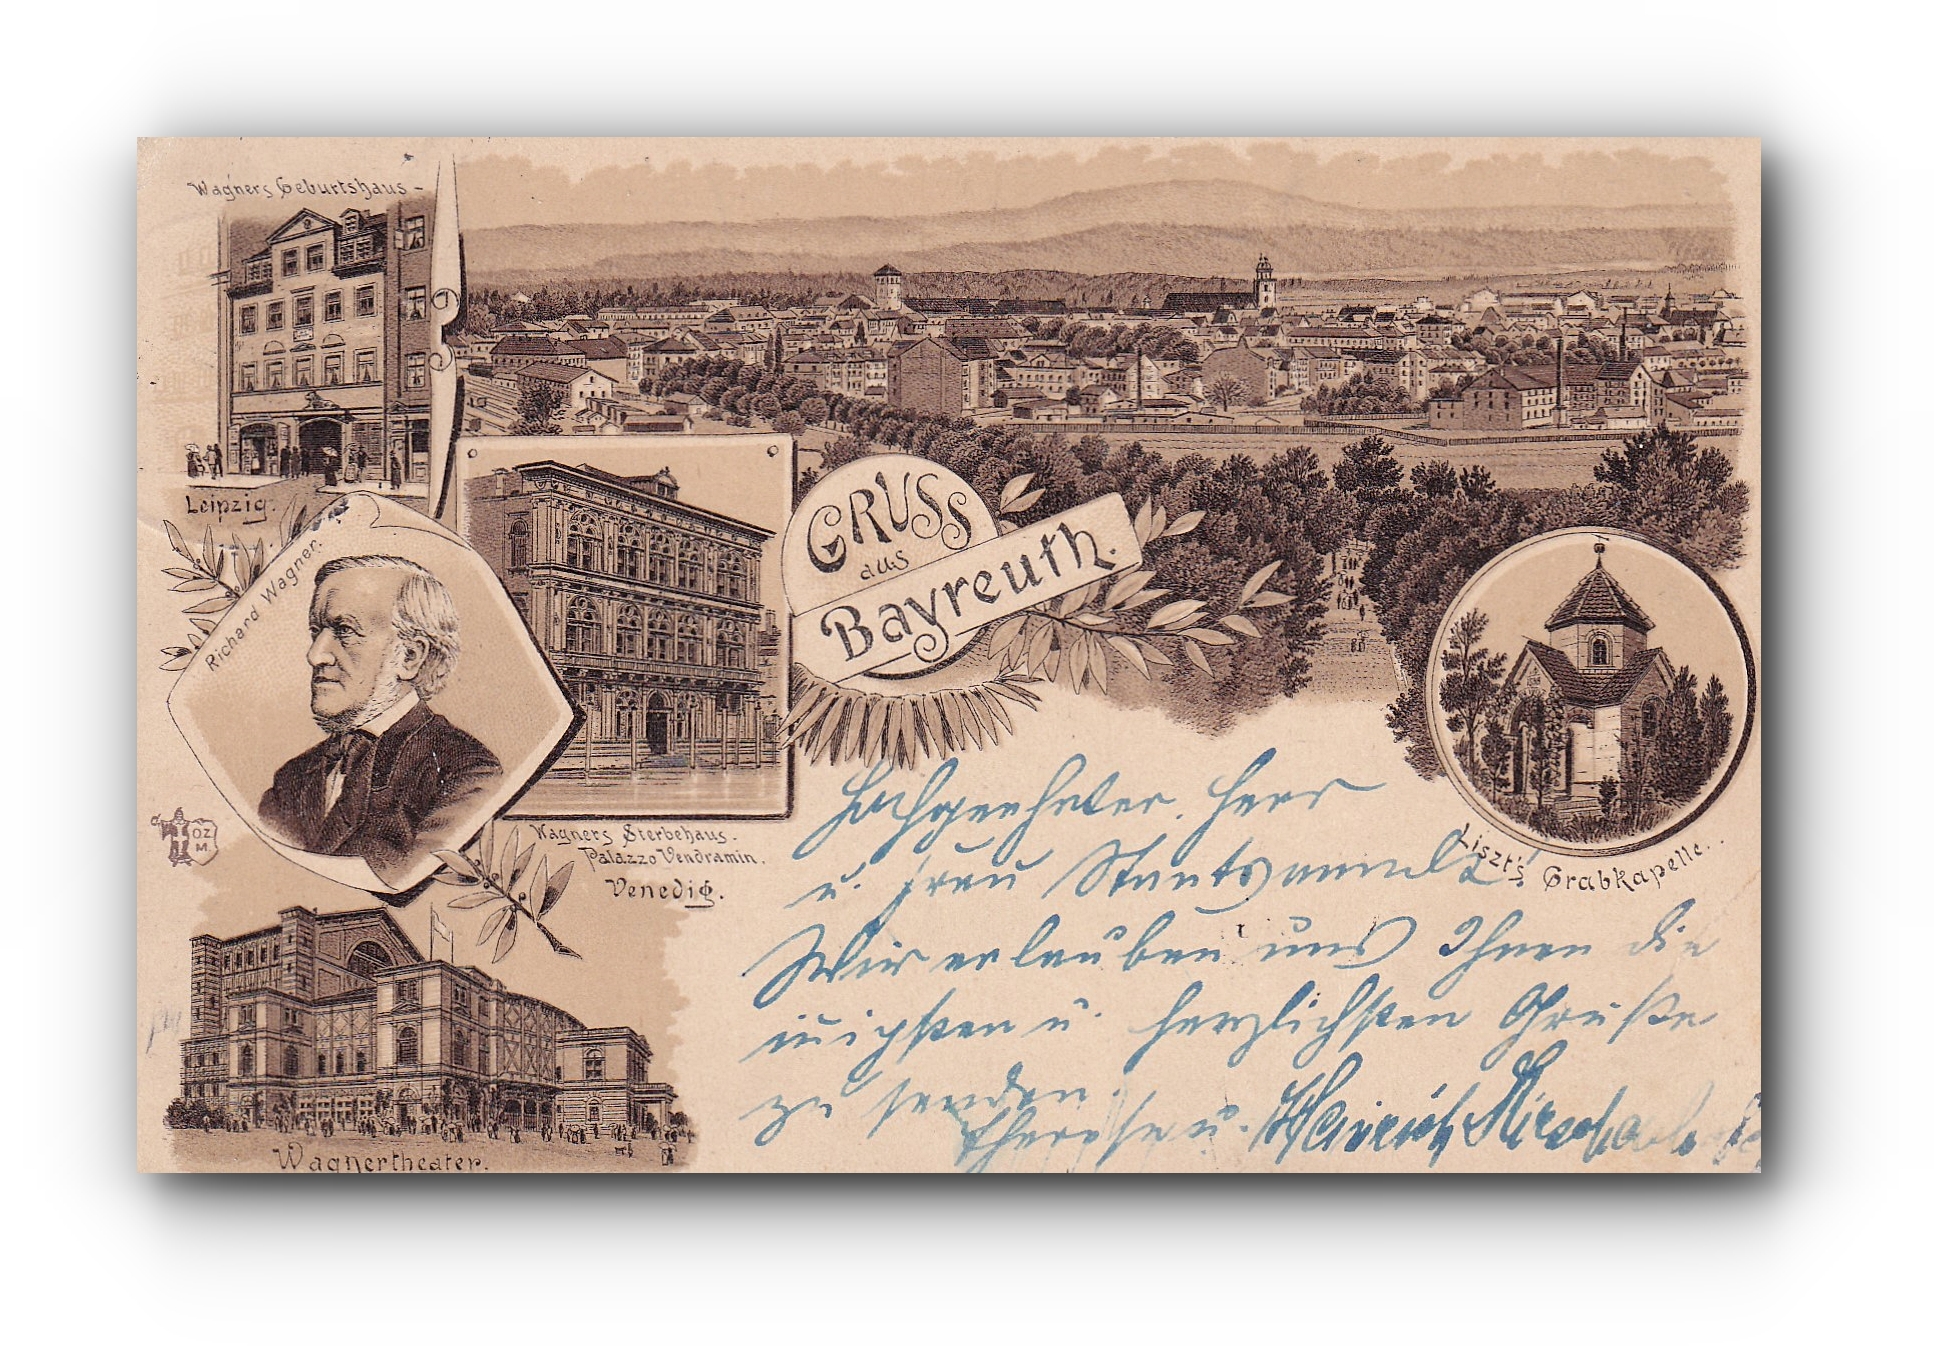 Wagners Geburtshaus -
Leipzig.
Richard Wagner.
GRUSS
aus
Bayreuth.
Wagners Sterbehaus.
Palazzo Vendramin.
Venedig.
Liszt's Grabkapelle.
OZ
M
Wagnertheater.
Hochgeehrter Herr
u. Frau Staatsanwalt!
Wir erlauben uns Ihnen die
innigsten u. herzlichsten Grüße
zu senden.
Therese u. Heinrich